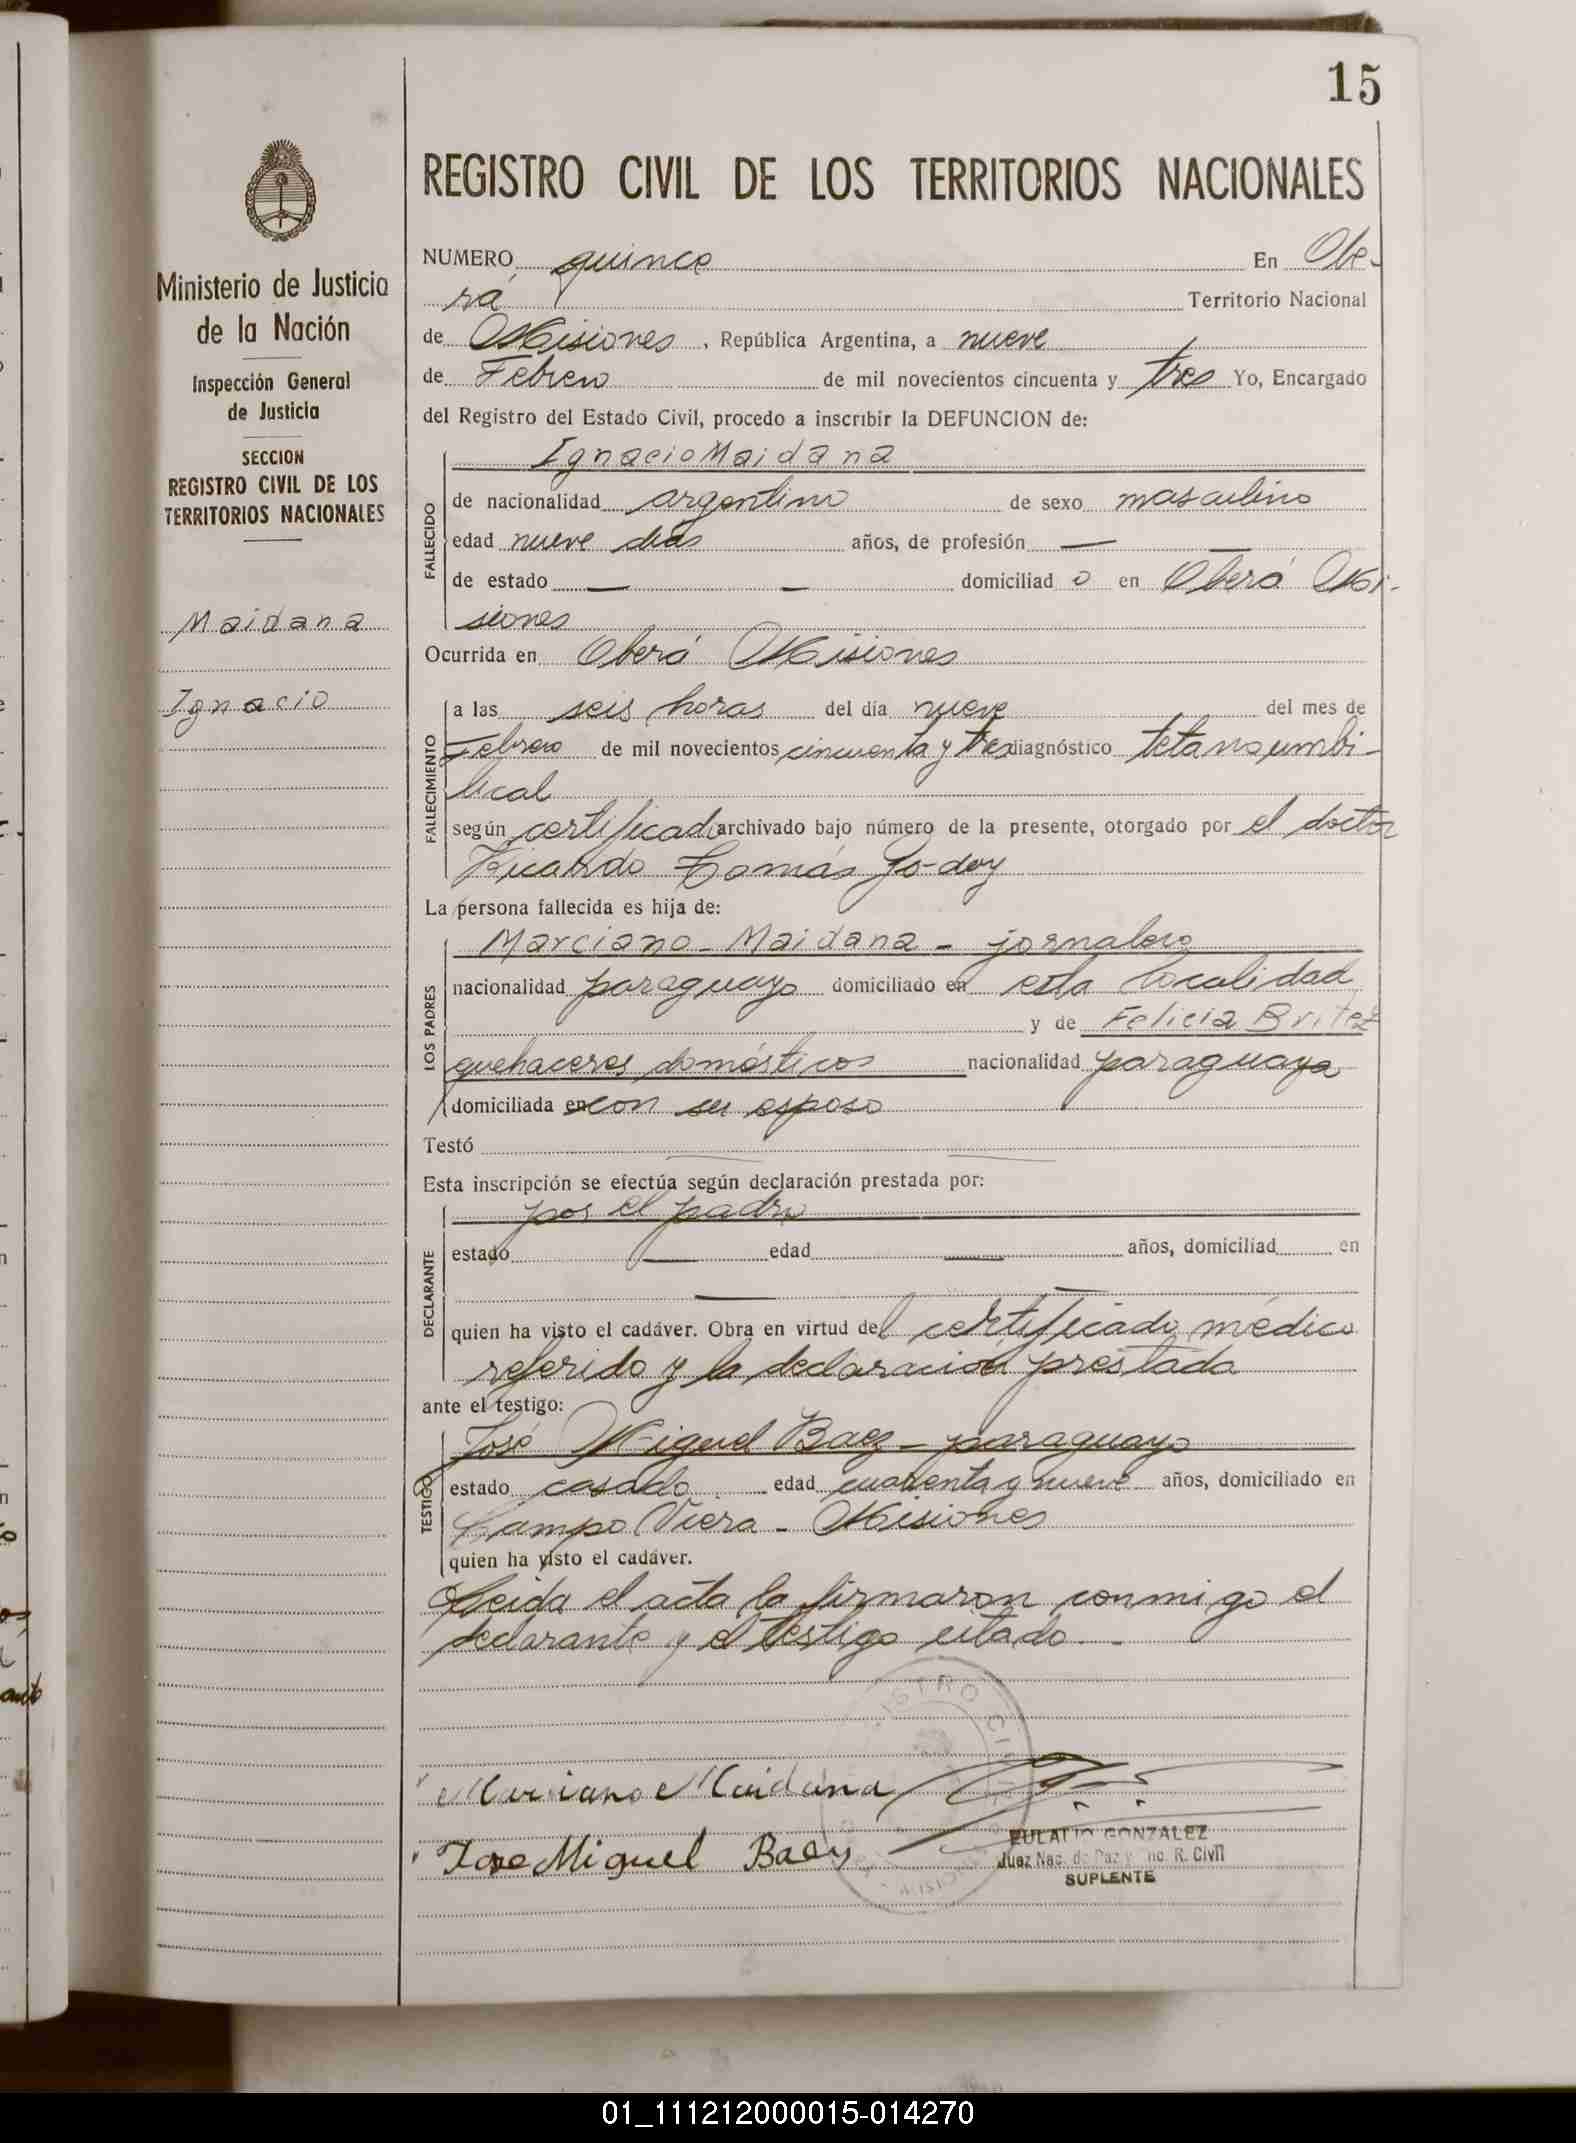 15
REGISTRO CIVIL DE LOS TERRITORIOS NACIONALES
Ministerio de Justicia
de la Nación
Inspección General
de Justicia
SECCION
REGISTRO CIVIL DE LOS
TERRITORIOS NACIONALES
Maidana
Ignacio
NUMERO quince En Obe-
rá Territorio Nacional
de Misiones, República Argentina, a nueve
de Febrero de mil novecientos cincuenta y tres Yo, Encargado
del Registro del Estado Civil, procedo a inscribir la DEFUNCION de:
Ignacio Maidana
FALLECIDO
de nacionalidad argentino de sexo masculino
edad nueve dias años, de profesión — —
de estado — — domiciliad o en Oberá Mi-
siones
Ocurrida en Oberá Misiones
FALLECIMIENTO
a las seis horas del día nueve del mes de
Febrero de mil novecientos cincuenta y tres diagnóstico tetano umbi-
lical
según certificado archivado bajo número de la presente, otorgado por el doctor
Ricardo Tomás Godoy
La persona fallecida es hija de:
LOS PADRES
Marciano - Maidana - jornalero
nacionalidad paraguayo domiciliado en esta localidad
y de Felicia Britez
quehaceres domésticos nacionalidad paraguaya
domiciliada en con su esposo
Testó
Esta inscripción se efectúa según declaración prestada por:
DECLARANTE
por el padre
estado — edad — años, domiciliad en
—
quien ha visto el cadáver. Obra en virtud del certificado médico
referido y la declaración prestada
ante el testigo:
TESTIGO
José Miguel Baez - paraguayo
estado casado edad cuarenta y nueve años, domiciliado en
Campo Viera - Misiones
quien ha visto el cadáver.
Leida el acta la firmaron conmigo el
declarante y el testigo citado. -
Marciano Maidana
Jose Miguel Baez
EULALIO GONZALEZ
Juez Nac. de Paz y Enc. R. Civil
SUPLENTE
01_111212000015-014270